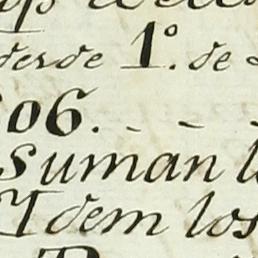 desde 1º. de
06. - - -
Suman l
Idem los